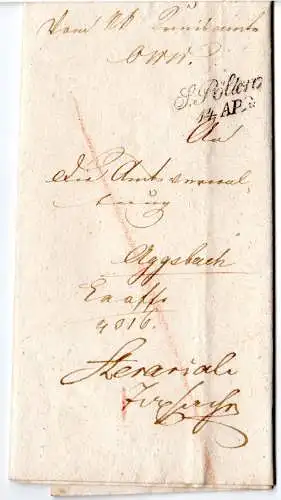 Vom KK Kreisamte
OWW.
St. Pölten
14. AP.
An
die Amtsverwal
tung
Aggsbach
Ex offo
4016.
Aerarial